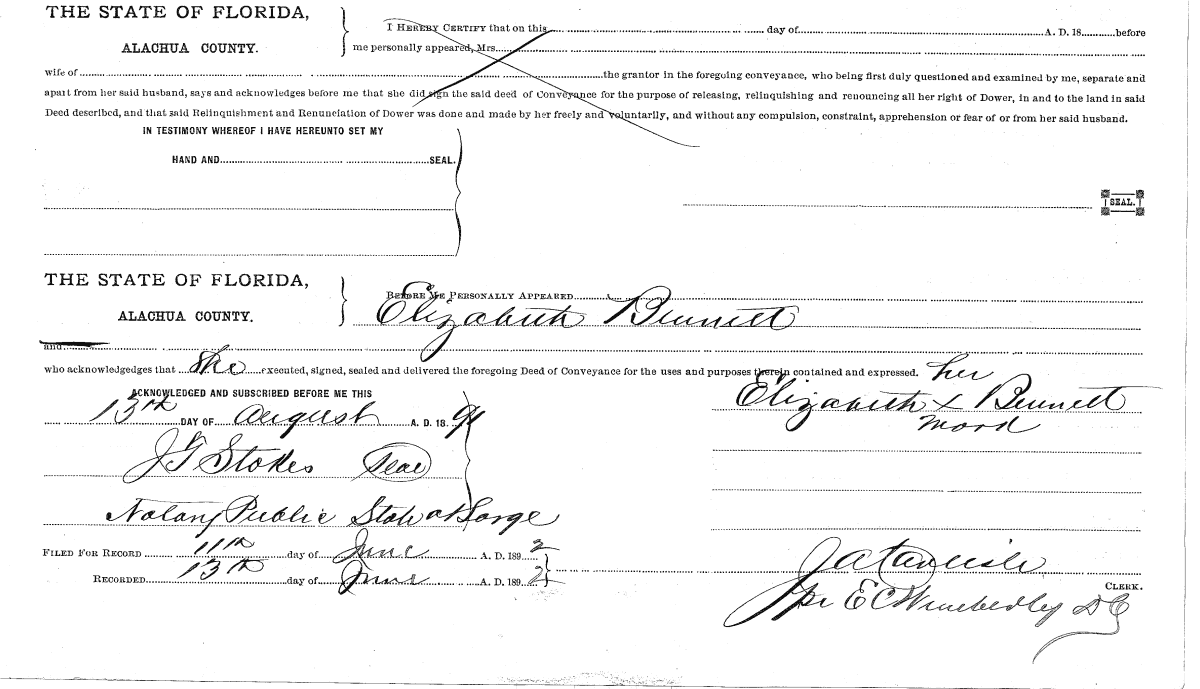 THE STATE OF FLORIDA,
ALACHUA COUNTY.
I HEREBY CERTIFY that on this day of A. D. 18 before
me personally appeared, Mrs.
wife of the grantor in the foregoing conveyance, who being first duly questioned and examined by me, separate and
apart from her said husband, says and acknowledges before me that she did sign the said deed of Conveyance for the purpose of releasing, relinquishing and renouncing all her right of Dower, in and to the land in said
Deed described, and that said Relinquishment and Renunciation of Dower was done and made by her freely and voluntarily, and without any compulsion, constraint, apprehension or fear of or from her said husband.
IN TESTIMONY WHEREOF I HAVE HEREUNTO SET MY
HAND AND SEAL.
SEAL.
THE STATE OF FLORIDA,
ALACHUA COUNTY.
BEFORE ME PERSONALLY APPEARED
Elizabeth Bennett
and
who acknowledges that She executed, signed, sealed and delivered the foregoing Deed of Conveyance for the uses and purposes therein contained and expressed.
her
Elizabeth X Bennett
mark
ACKNOWLEDGED AND SUBSCRIBED BEFORE ME THIS
13th DAY OF August A. D. 18 91
J G Stokes Seal
Notary Public State at Large
FILED FOR RECORD 11th day of June A. D. 189 2
RECORDED 13th day of June A. D. 189 2
J A Carlisle
CLERK.
pr E C Wimberley D C